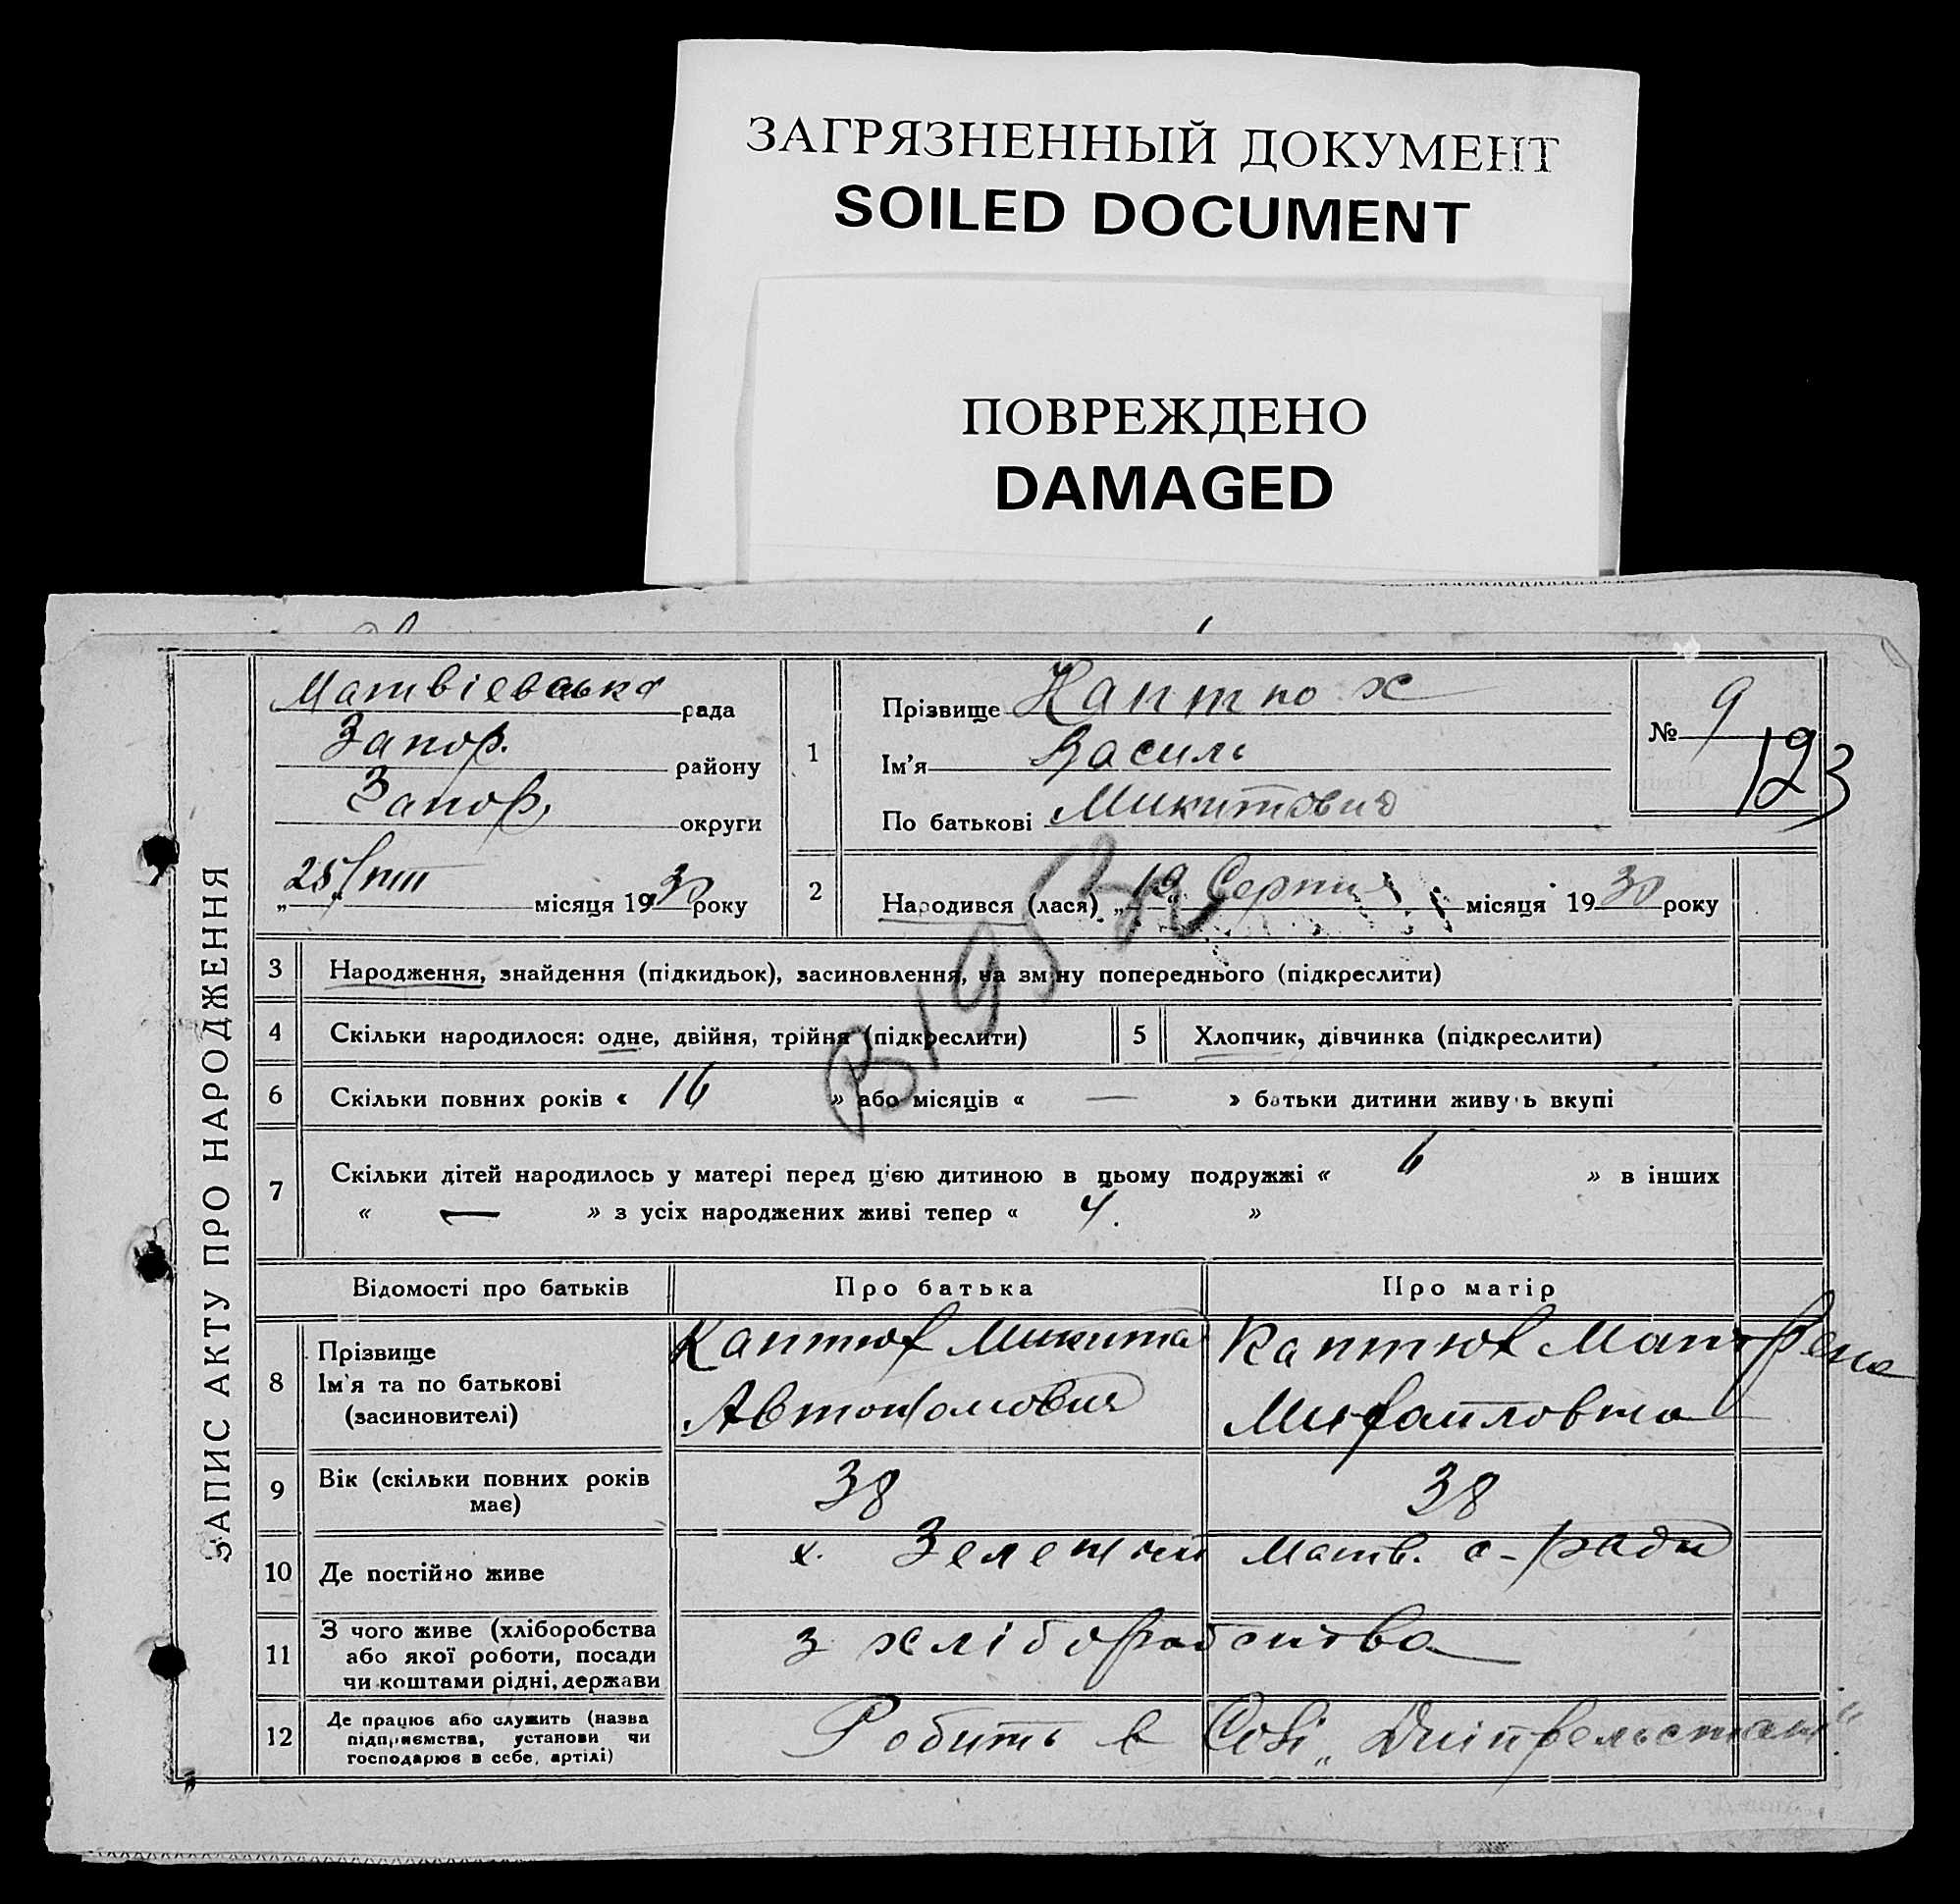 ЗАГРЯЗНЕННЫЙ ДОКУМЕНТ
SOILED DOCUMENT
ПОВРЕЖДЕНО
DAMAGED
ЗАПИС АКТУ ПРО НАРОДЖЕННЯ
Матвієвська рада
Запор. району
Запор. округи
„25" VIII місяця 1930 року
1
Прізвище Каптюх
Ім'я Василь
По батькові Микитович
№ 9
123
2
Народився (лася) „19" Серпня місяця 1930 року
3 Народження, знайдення (підкидьок), засиновлення, на зміну попереднього (підкреслити)
4 Скільки народилося: одне, двійня, трійня (підкреслити) 5 Хлопчик, дівчинка (підкреслити)
6 Скільки повних років « 16 » або місяців « — » батьки дитини живуть вкупі
7 Скільки дітей народилось у матері перед цією дитиною в цьому подружжі « 6 » в інших
« — » з усіх народжених живі тепер « 4. »
Відомості про батьків Про батька Про матір
8 Прізвище
Ім'я та по батькові
(засиновителі)
Каптюх Микита
Автономович
Каптюх Мотрена
Михайловна
9 Вік (скільки повних років
має)
38 38
10 Де постійно живе х. Зелений Матв. с-ради
11 З чого живе (хліборобства
або якої роботи, посади
чи коштами рідні, держави
з хліборобства
12 Де працює або служить (назва
підприємства, установи чи
господарює в себе, артілі)
Робить в